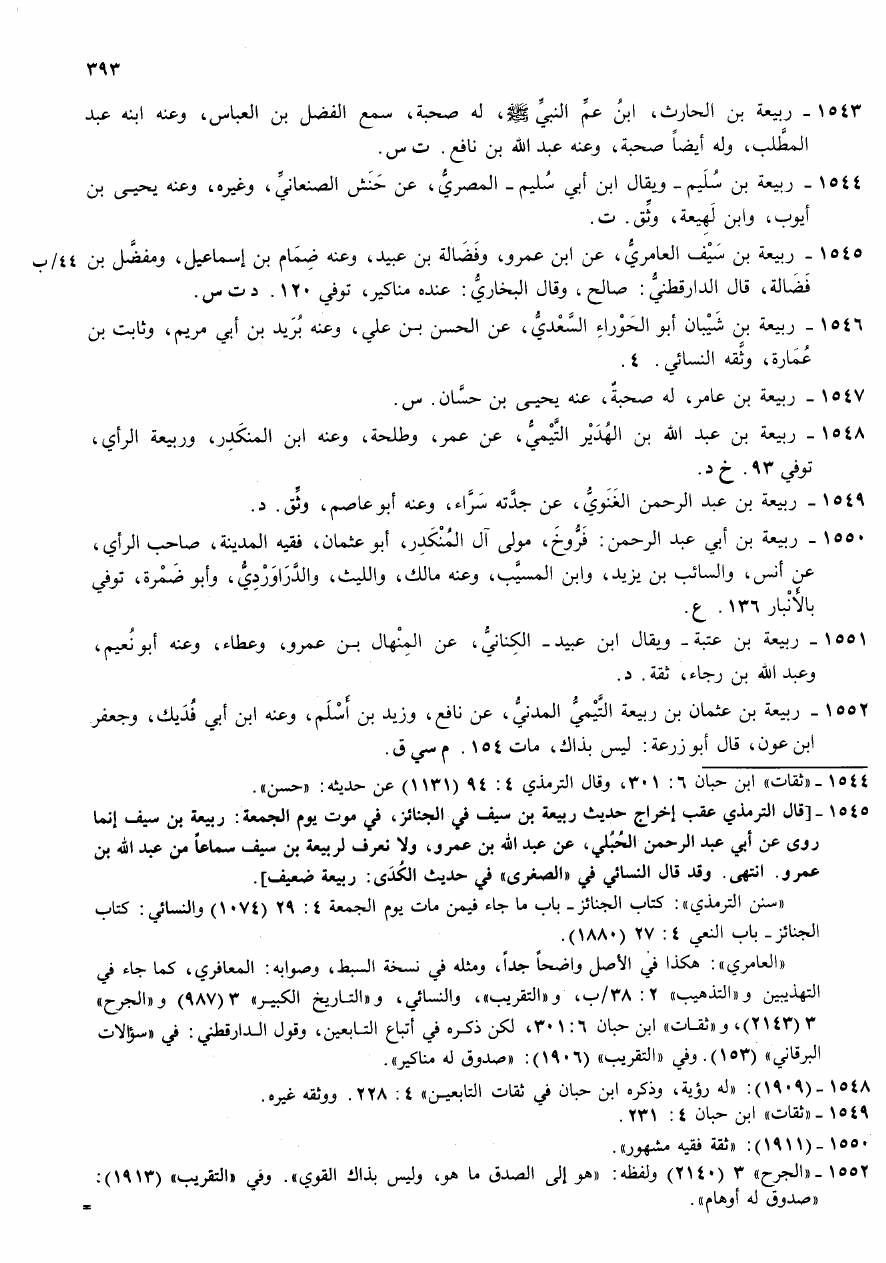 ٣٩٣
١٥٤٣ - ربيعة بن الحارث، ابنُ عمِّ النبيِّ ﷺ، له صحبة، سمع الفضل بن العباس، وعنه ابنه عبد
المطَّلب، وله أيضاً صحبة، وعنه عبد الله بن نافع. ت س.
١٥٤٤ - ربيعة بن سُلَيم - ويقال ابن أبي سُليم - المصريُّ، عن حَنَش الصنعانيِّ، وغيره، وعنه يحيى بن
أيوب، وابن لَهِيعة، وثِّق. ت.
١٥٤٥ - ربيعة بن سَيْف العامريُّ، عن ابن عمرو، وفَضَالة بن عبيد، وعنه ضِمَام بن إسماعيل، ومفضَّل بن ٤٤/ب
فَضَالة، قال الدارقطنيُّ: صالح، وقال البخاريُّ: عنده مناكير، توفي ١٢٠. د ت س.
١٥٤٦ - ربيعة بن شَيْبان أبو الحَوْراءِ السَّعْديُّ، عن الحسن بن علي، وعنه بُرَيد بن أبي مريم، وثابت بن
عُمَارة، وثَّقه النسائي. ٤.
١٥٤٧ - ربيعة بن عامر، له صحبةٌ، عنه يحيى بن حسَّان. س.
١٥٤٨ - ربيعة بن عبد الله بن الهُدَيْر التَّيْميُّ، عن عمر، وطلحة، وعنه ابن المنكَدِر، وربيعة الرأي،
توفي ٩٣. خ د.
١٥٤٩ - ربيعة بن عبد الرحمن الغَنَويُّ، عن جدَّته سَرَّاء، وعنه أبو عاصم، وثِّق. د.
١٥٥٠ - ربيعة بن أبي عبد الرحمن: فَرُّوخَ، مولى آل المُنْكَدِر، أبو عثمان، فقيه المدينة، صاحب الرأي،
عن أنس، والسائب بن يزيد، وابن المسيَّب، وعنه مالك، والليث، والدَّرَاوَرْدِيُّ، وأبو ضَمْرة، توفي
بالأَنْبار ١٣٦. ع.
١٥٥١ - ربيعة بن عتبة - ويقال ابن عبيد - الكِنانيُّ، عن المِنْهال بن عمرو، وعطاء، وعنه أبو نُعيم،
وعبد الله بن رجاء، ثقة. د.
١٥٥٢ - ربيعة بن عثمان بن ربيعة التَّيْميُّ المدنيُّ، عن نافع، وزيد بن أَسْلَم، وعنه ابن أبي فُدَيك، وجعفر
ابن عون، قال أبو زرعة: ليس بذاك، مات ١٥٤. م سي ق.
١٥٤٤ - «ثقات» ابن حبان ٦: ٣٠١، وقال الترمذي ٤: ٩٤ (١١٣١) عن حديثه: «حسن».
١٥٤٥ - [قال الترمذي عقب إخراج حديث ربيعة بن سيف في الجنائز، في موت يوم الجمعة: ربيعة بن سيف إنما
روى عن أبي عبد الرحمن الحُبُلي، عن عبد الله بن عمرو، ولا نعرف لربيعة بن سيف سماعاً من عبد الله بن
عمرو. انتهى. وقد قال النسائي في «الصغرى» في حديث الكُدَى: ربيعة ضعيف].
«سنن الترمذي»: كتاب الجنائز - باب ما جاء فيمن مات يوم الجمعة ٤: ٢٩ (١٠٧٤) والنسائي: كتاب
الجنائز - باب النعي ٤: ٢٧ (١٨٨٠).
«العامري»: هكذا في الأصل واضحاً جداً، ومثله في نسخة السبط، وصوابه: المعافري، كما جاء في
التهذيبين و«التذهيب» ٢: ٣٨/ب، و«التقريب»، والنسائي، و«التاريخ الكبير» ٣ (٩٨٧) و«الجرح»
٣ (٢١٤٣)، و«ثقات» ابن حبان ٦: ٣٠١، لكن ذكره في أتباع التابعين، وقول الدارقطني: في «سؤالات
البرقاني» (١٥٣). وفي «التقريب» (١٩٠٦): «صدوق له مناكير».
١٥٤٨ - (١٩٠٩): «له رؤية، وذكره ابن حبان في ثقات التابعين» ٤: ٢٢٨. ووثقه غيره.
١٥٤٩ - «ثقات» ابن حبان ٤: ٢٣١.
١٥٥٠ - (١٩١١): «ثقة فقيه مشهور».
١٥٥٢ - «الجرح» ٣ (٢١٤٠) ولفظه: «هو إلى الصدق ما هو، وليس بذاك القوي». وفي «التقريب» (١٩١٣):
«صدوق له أوهام».
=